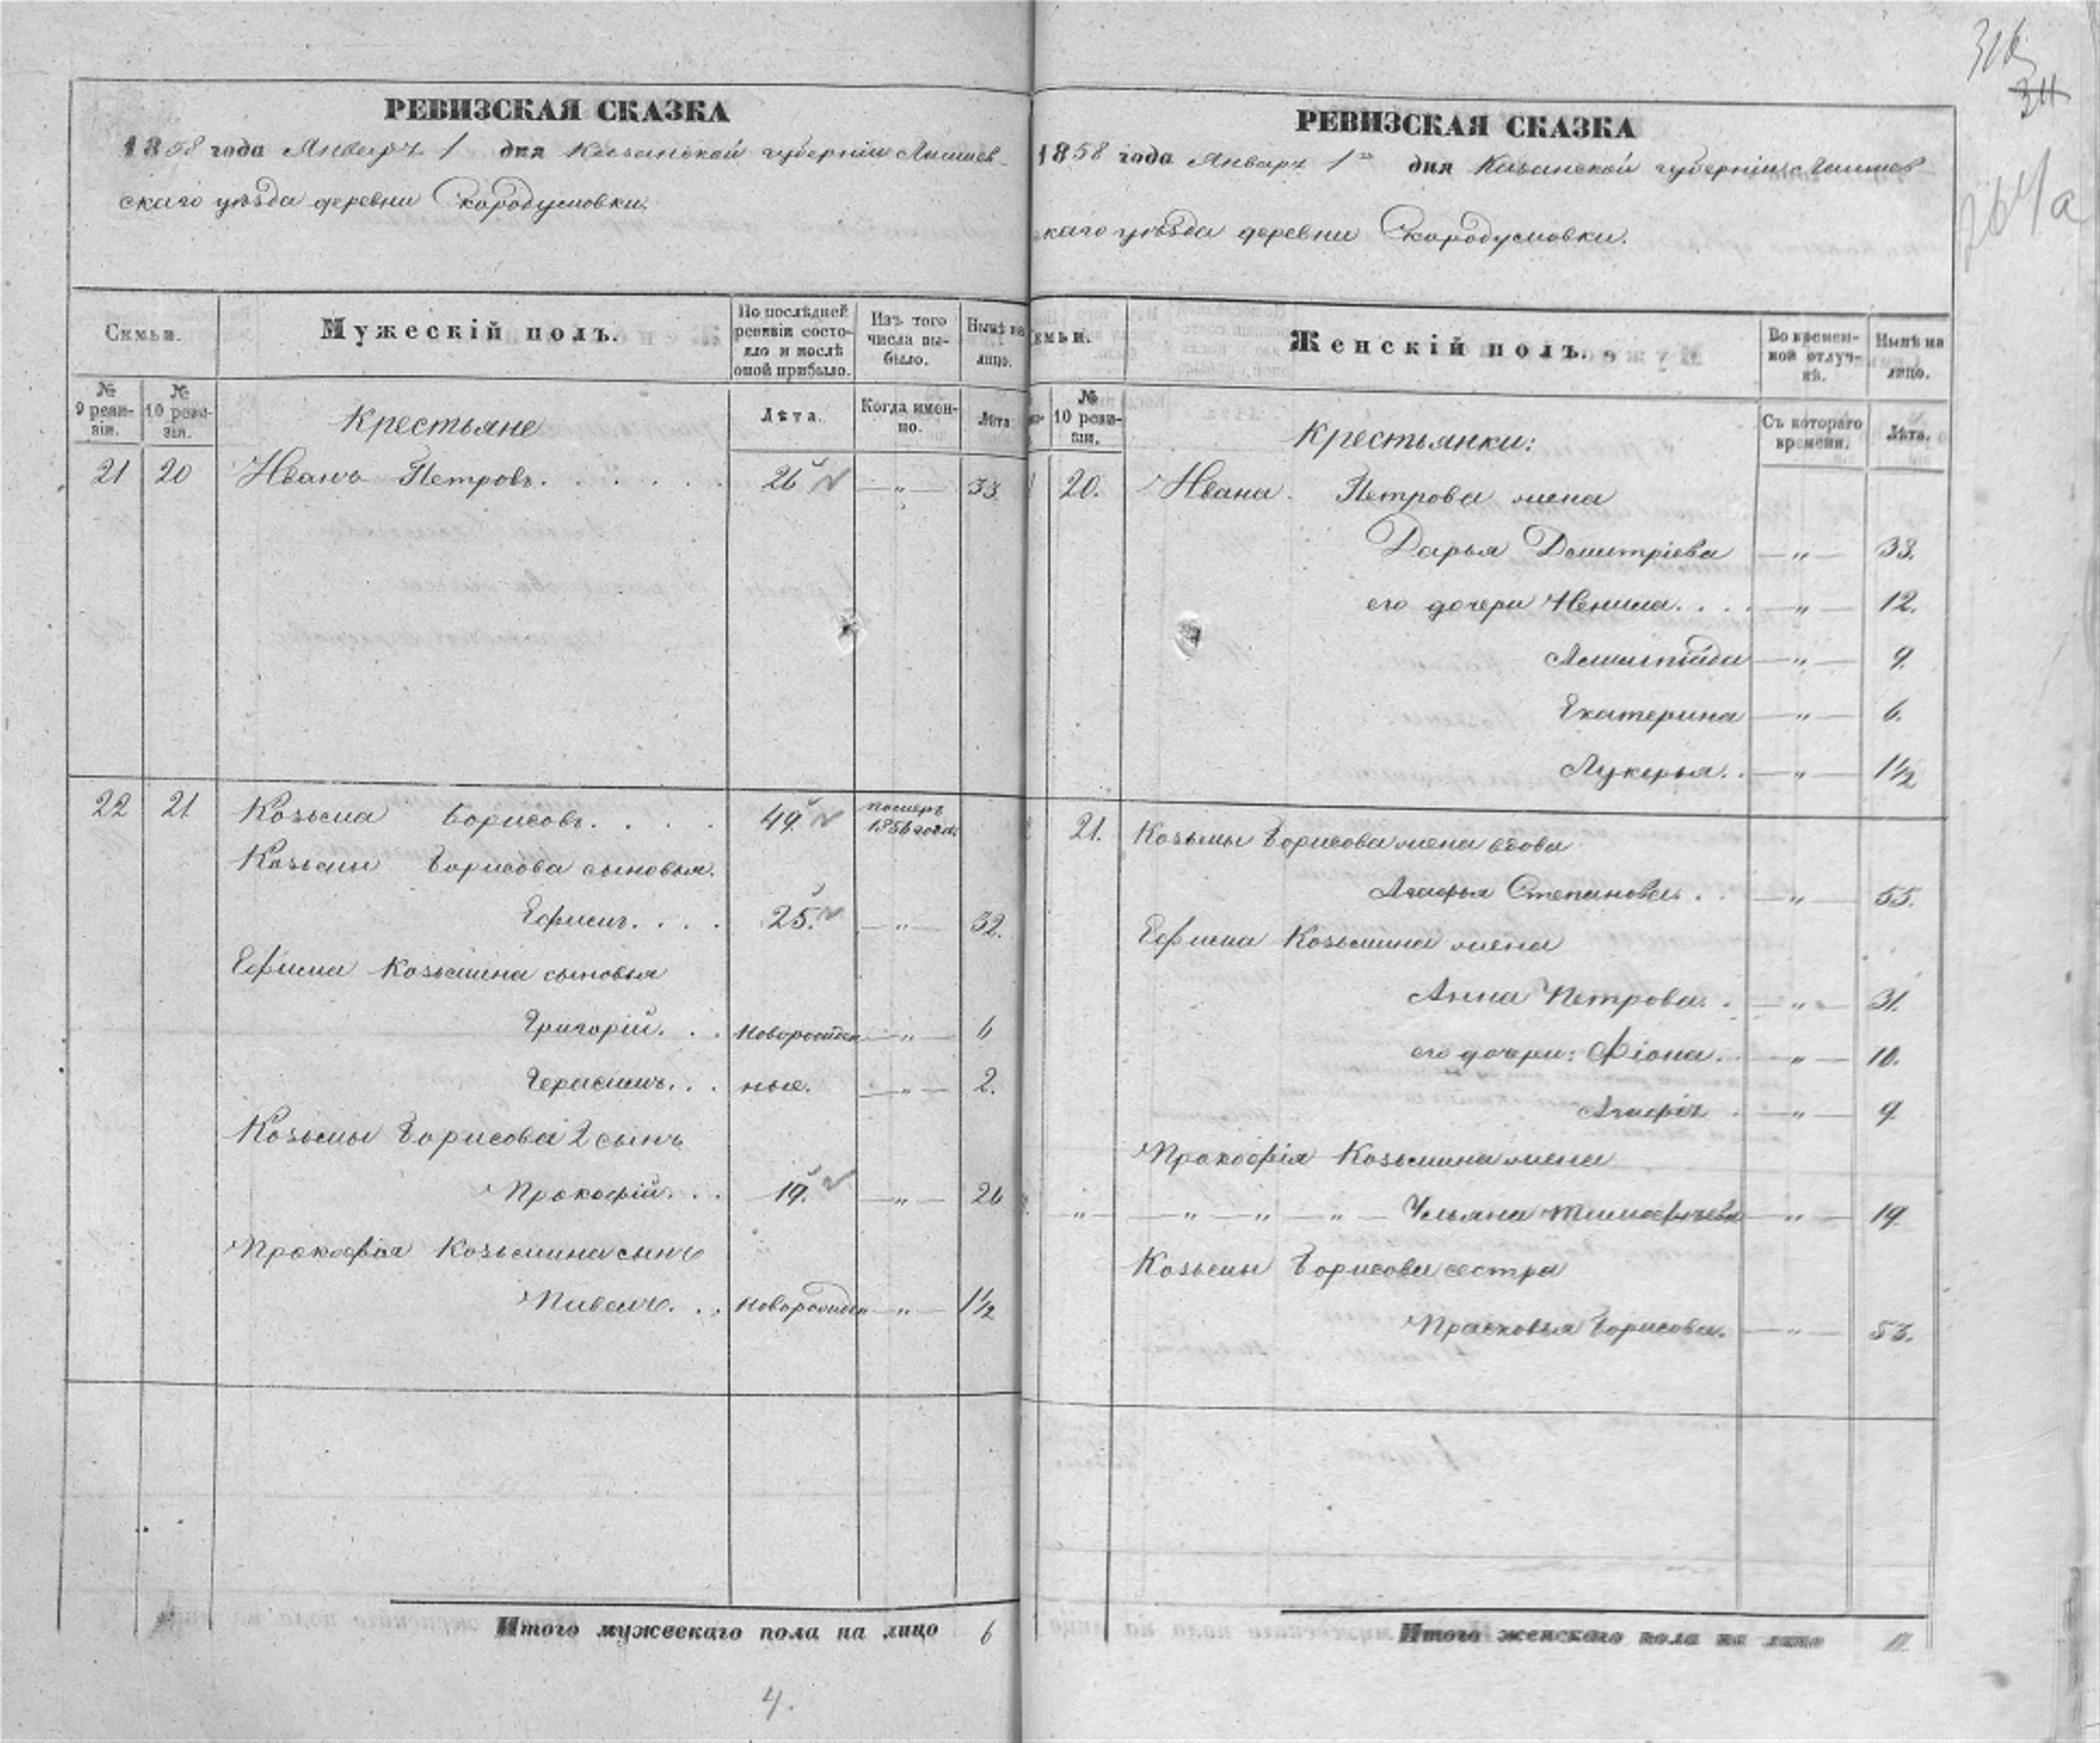 316
34
264а
РЕВИЗСКАЯ СКАЗКА
1858 года Январь 1 дня Казанской губерніи Лаишев-
скаго уѣзда деревни Скородумовки.
Семьи. Мужескій полъ. По послѣдней ревизіи состояло и послѣ оной прибыло. Изъ того числа выбыло. Нынѣ на лицо.
№ 9 ревизіи. № 10 ревизіи. Крестьяне Лѣта. Когда именно. Лѣта
21 20 Иванъ Петровъ. 26 — " — 33
22 21 Козьма Борисовъ. 49. померъ 1856 года
Козьмы Борисова сыновья.
Ефимъ. 25. — " — 32.
Ефима Козьмина сыновья
Григорій. Новорожден — " — 6
Герасимъ. ные. — " — 2.
Козьмы Борисова 2 сынъ
Прокофій. 19. — " — 26
Прокофія Козьмина сынъ
Павелъ. Новорожден — " — 1½
Итого мужескаго пола на лицо 6
4.
РЕВИЗСКАЯ СКАЗКА
1858 года Январь 1 дня Казанской губерніи Лаишев-
скаго уѣзда деревни Скородумовки.
емьи. Женскій полъ. Во временной отлучкѣ. Нынѣ на лицо.
№ 10 ревизіи. Крестьянки: Съ котораго времени. Лѣта.
20. Ивана Петрова жена
Дарья Дмитріева — " — 33.
его дочери Ненила. — " — 12.
— " — 9.
Екатерина — " — 6.
Лукерья. — " — 1½
21. Козьмы Борисова жена вдова
Агафья Степанова. — " — 55.
Ефима Козьмина жена
Анна Петрова. — " — 31.
его дочери: Фіона. — " — 10.
— " — 9
Прокофія Козьмина жена
" — " — " — " — Ульяна Тимофеева — " — 19
Козьмы Борисова сестра
Прасковья Борисова. — " — 53.
Итого женскаго пола на лицо 11